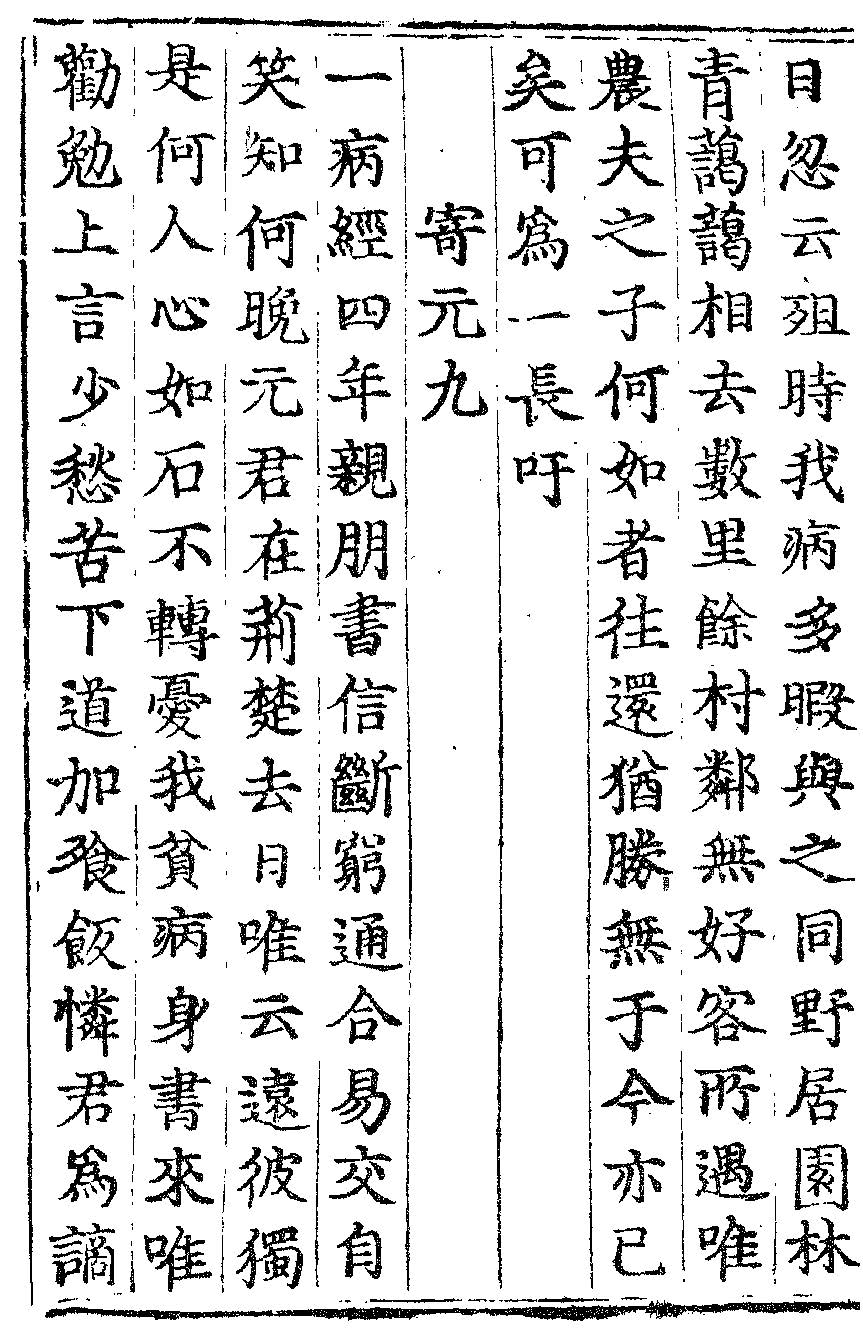 日忽云殂時我病多暇與之同野居園林
青藹藹相去數里餘村鄰無好客所遇唯
農夫之子何如者往還猶勝無于今亦已
矣可爲一長吁
寄元九
一病經四年親朋書信斷窮通合易交自
笑知何晚元君在荊楚去日唯云遠彼獨
是何人心如石不轉憂我貧病身書來唯
勸勉上言少愁苦下道加飱飯憐君爲謫